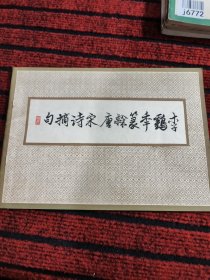 李鶴年篆隸唐宋詩摘句
j6772